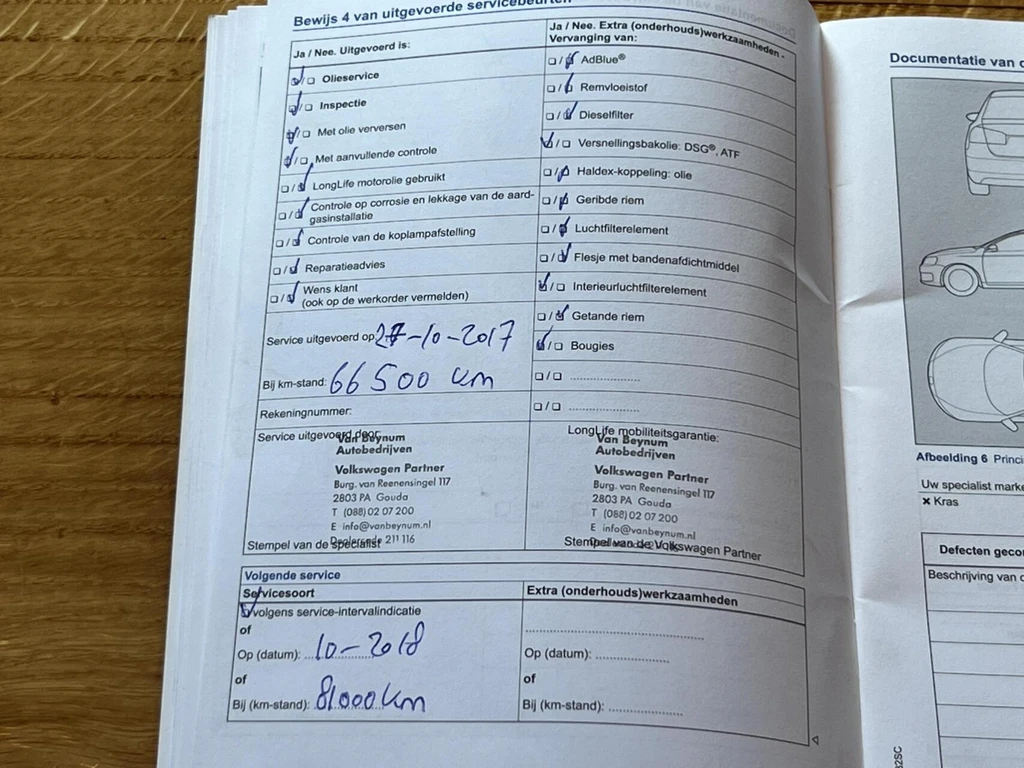 Bewijs 4 van uitgevoerde servicebeurten
Ja / Nee. Uitgevoerd is:
☑/☐ Olieservice
☑/☐ Inspectie
☑/☐ Met olie verversen
☑/☐ Met aanvullende controle
☐/☑ LongLife motorolie gebruikt
☐/☑ Controle op corrosie en lekkage van de aard-
gasinstallatie
☐/☑ Controle van de koplampafstelling
☐/☑ Reparatieadvies
☐/☑ Wens klant
(ook op de werkorder vermelden)
Service uitgevoerd op: 27-10-2017
Bij km-stand: 66 500 km
Rekeningnummer:
Ja / Nee. Extra (onderhouds)werkzaamheden -
Vervanging van:
☐/☑ AdBlue®
☐/☑ Remvloeistof
☐/☑ Dieselfilter
☑/☐ Versnellingsbakolie: DSG®, ATF
☐/☑ Haldex-koppeling: olie
☐/☑ Geribde riem
☐/☑ Luchtfilterelement
☐/☑ Flesje met bandenafdichtmiddel
☑/☐ Interieurluchtfilterelement
☐/☑ Getande riem
☑/☐ Bougies
☐/☐ ....................
☐/☐ ....................
Service uitgevoerd door:
Van Beynum
Autobedrijven
Volkswagen Partner
Burg. van Reenensingel 117
2803 PA Gouda
T (088) 02 07 200
E info@vanbeynum.nl
Dealercode 211 116
Stempel van de specialist
LongLife mobiliteitsgarantie:
Van Beynum
Autobedrijven
Volkswagen Partner
Burg. van Reenensingel 117
2803 PA Gouda
T (088) 02 07 200
E info@vanbeynum.nl
Stempel van de Volkswagen Partner
Volgende service
Servicesoort
☑ volgens service-intervalindicatie
of
Op (datum): 10-2018
of
Bij (km-stand): 81000 km
Extra (onderhouds)werkzaamheden
Op (datum): ....................
of
Bij (km-stand): ....................
Documentatie van
Afbeelding 6 Princi
Uw specialist marke
× Kras
Defecten gecon
Beschrijving van d